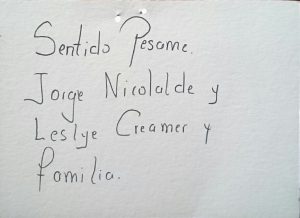 Sentido Pesame.
Jorge Nicolalde y
Leslye Creamer y
familia.